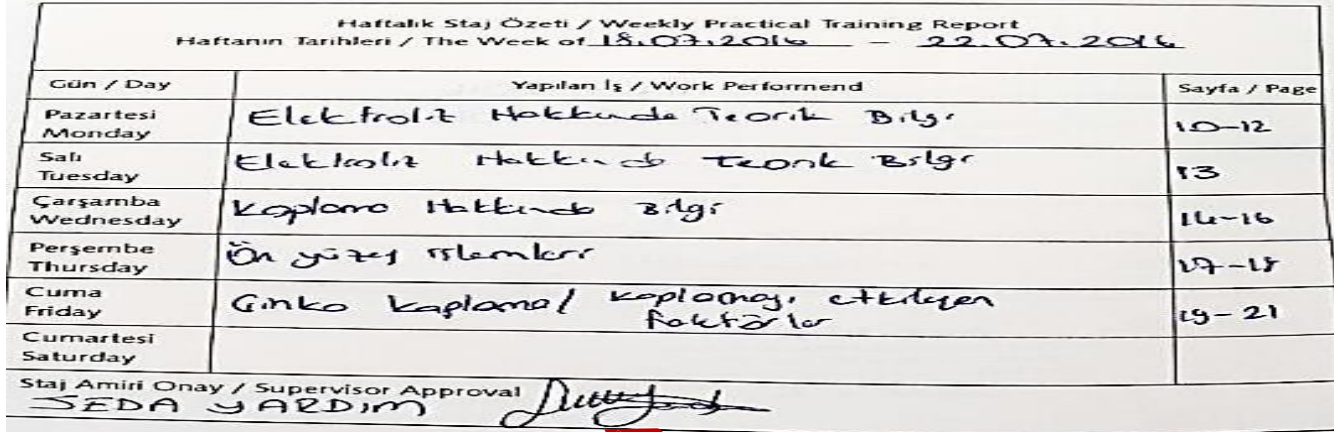 Haftalık Staj Özeti / Weekly Practical Training Report
Haftanın Tarihleri / The Week of 18.07.2016 – 22.07.2016
Gün / Day Yapılan İş / Work Performend Sayfa / Page
Pazartesi
Monday
Elektroliz Hakkında Teorik Bilgi 10-12
Salı
Tuesday
Elektroliz Hakkında Teorik Bilgi 13
Çarşamba
Wednesday
Kaplama Hakkında Bilgi 14-16
Perşembe
Thursday
Ön yüzey işlemleri 17-18
Cuma
Friday
Çinko kaplama / kaplamayı etkileyen
faktörler
19-21
Cumartesi
Saturday
Staj Amiri Onay / Supervisor Approval
SEDA YARDIM